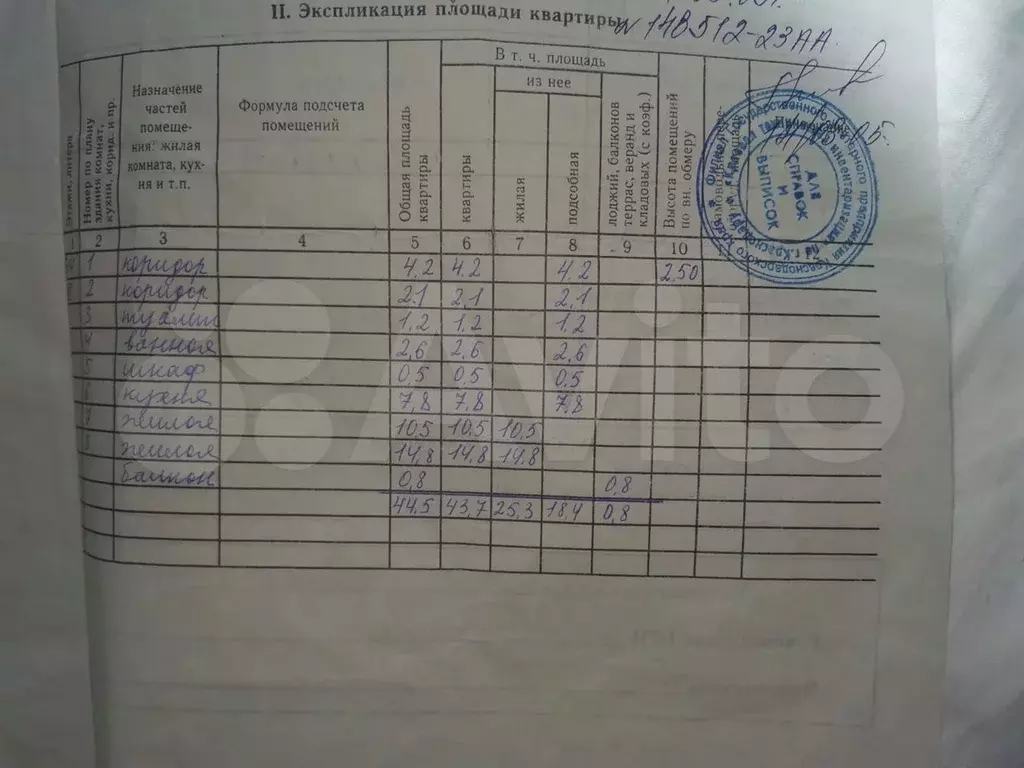 II. Экспликация площади квартиры
N 148512-23АА
Этажи, литера
Номер по плану здания комнат, кухни, корид. и пр.
Назначение частей помеще- ния: жилая комната, кух- ня и т.п.
Формула подсчета помещений
Общая площадь квартиры
В т. ч. площадь
квартиры
из нее
жилая
подсобная
лоджий, балконов террас, веранд и кладовых (с коэф.)
Высота помещений по вн. обмеру
ДЛЯ
СПРАВОК
И
ВЫПИСОК
1 2 3 4 5 6 7 8 9 10
1 коридор 4,2 4,2 4,2 2,50
2 коридор 2,1 2,1 2,1
3 туалет 1,2 1,2 1,2
4 ванная 2,6 2,6 2,6
5 шкаф 0,5 0,5 0,5
6 кухня 7,8 7,8 7,8
7 жилая 10,5 10,5 10,5
8 жилая 14,8 14,8 14,8
балкон 0,8 0,8
44,5 43,7 25,3 18,4 0,8
Avito